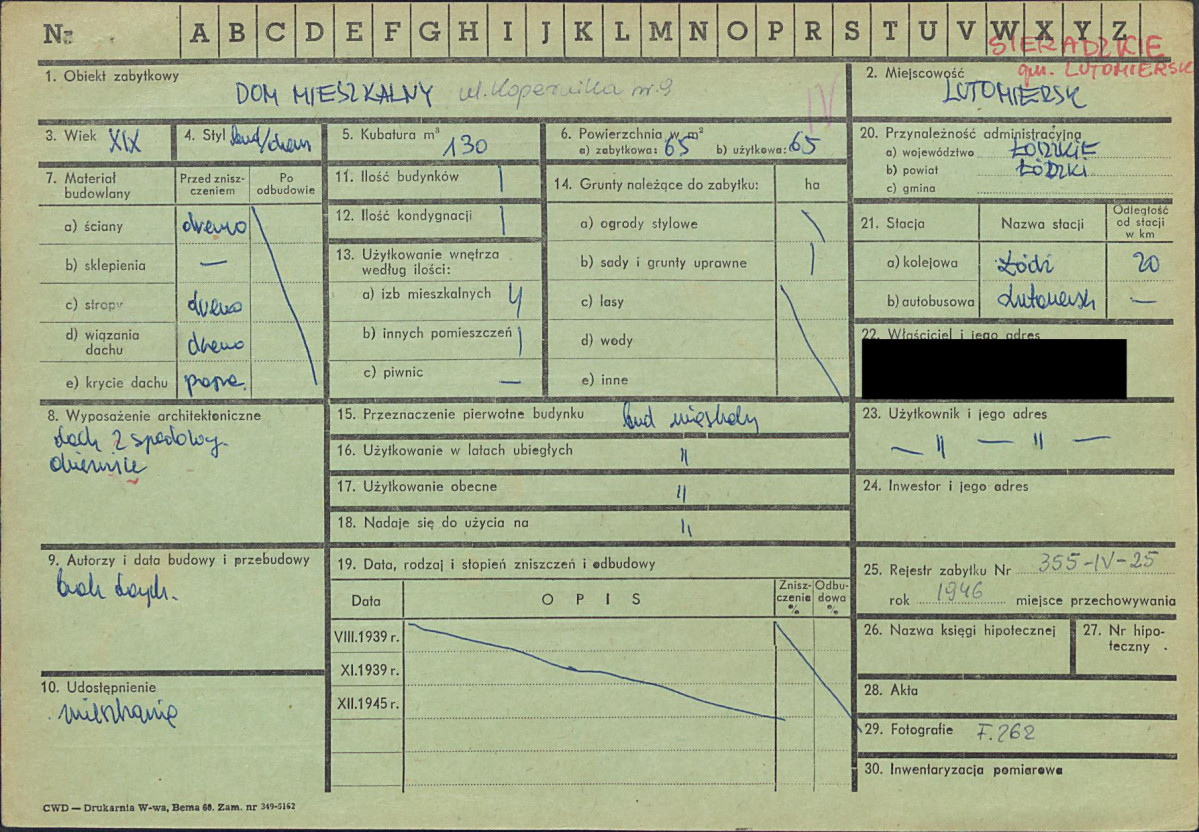 Nr A B C D E F G H I J K L M N O P R S T U V W X Y Z
SIERADZKIE
gm. LUTOMIERSK
1. Obiekt zabytkowy
DOM MIESZKALNY ul. Kopernika nr. 9
IV
2. Miejscowość
LUTOMIERSK
3. Wiek XIX
4. Styl bud/drewn
5. Kubatura m³
130
6. Powierzchnia w m²
a) zabytkowa: 65 b) użytkowa: 65
20. Przynależność administracyjna
a) województwo ŁÓDZKIE
b) powiat ŁÓDZKI
c) gmina
7. Materiał budowlany
Przed zniszczeniem
Po odbudowie
a) ściany drewno
b) sklepienia —
c) stropy drewno
d) wiązania dachu drewno
e) krycie dachu papa.
11. Ilość budynków 1
12. Ilość kondygnacji 1
13. Użytkowanie wnętrza
według ilości:
a) izb mieszkalnych 4
b) innych pomieszczeń 1
c) piwnic —
14. Grunty należące do zabytku: ha
a) ogrody stylowe
b) sady i grunty uprawne
c) lasy
d) wody
e) inne
21. Stacja
Nazwa stacji
Odległość od stacji w km
a) kolejowa Łódź 20
b) autobusowa Lutomiersk —
22. Właściciel i jego adres
8. Wyposażenie architektoniczne
dach 2 spadowy.
15. Przeznaczenie pierwotne budynku bud mieszkalny
16. Użytkowanie w latach ubiegłych "
17. Użytkowanie obecne "
18. Nadaje się do użycia na "
23. Użytkownik i jego adres
— " — " —
24. Inwestor i jego adres
9. Autorzy i data budowy i przebudowy
brak danych.
19. Data, rodzaj i stopień zniszczeń i odbudowy
Data
OPIS
Zniszczenie %
Odbudowa %
VIII.1939 r.
XI.1939 r.
XII.1945 r.
25. Rejestr zabytku Nr 355-IV-25
rok 1946 miejsce przechowywania
26. Nazwa księgi hipotecznej
27. Nr hipoteczny
10. Udostępnienie
mieszkanie
28. Akta
29. Fotografie F.262
30. Inwentaryzacja pomiarowa
CWD — Drukarnia W-wa, Bema 60. Zam. nr 349-5162